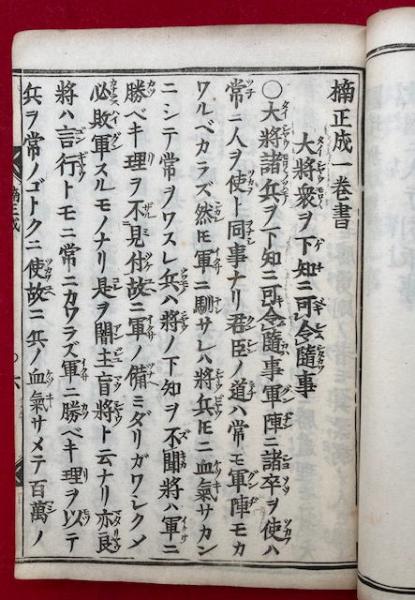 楠正成一巻書
大將衆ヲ下知ニ可令隨事
〇大將諸兵ヲ下知ニ可令隨事軍陣ニ諸卒ヲ使ハ
常ニ人ヲ使ト同事ナリ君臣ノ道ハ常モ軍陣モカ
ワルベカラズ然ドモ軍ニ馴サレハ將兵ドモニ血氣サカン
ニシテ常ヲワスレ兵ハ將ノ下知ヲ不聞將ハ軍ニ
勝ベキ理ヲ不見付故ニ軍ノ備ミダリガワシクメ
必敗軍スルモノナリ是ヲ闇主盲將ト云ナリ亦良
將ハ言行トモニ常ニカワラズ軍ニ勝ベキ理ヲ以テ
兵ヲ常ノゴトクニ使故ニ兵ノ血氣サメテ百萬ノ